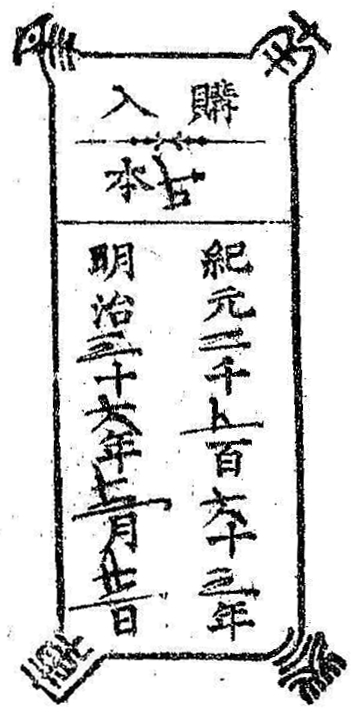 購入
古本
紀元二千五百六十三年
明治三十六年七月廿一日